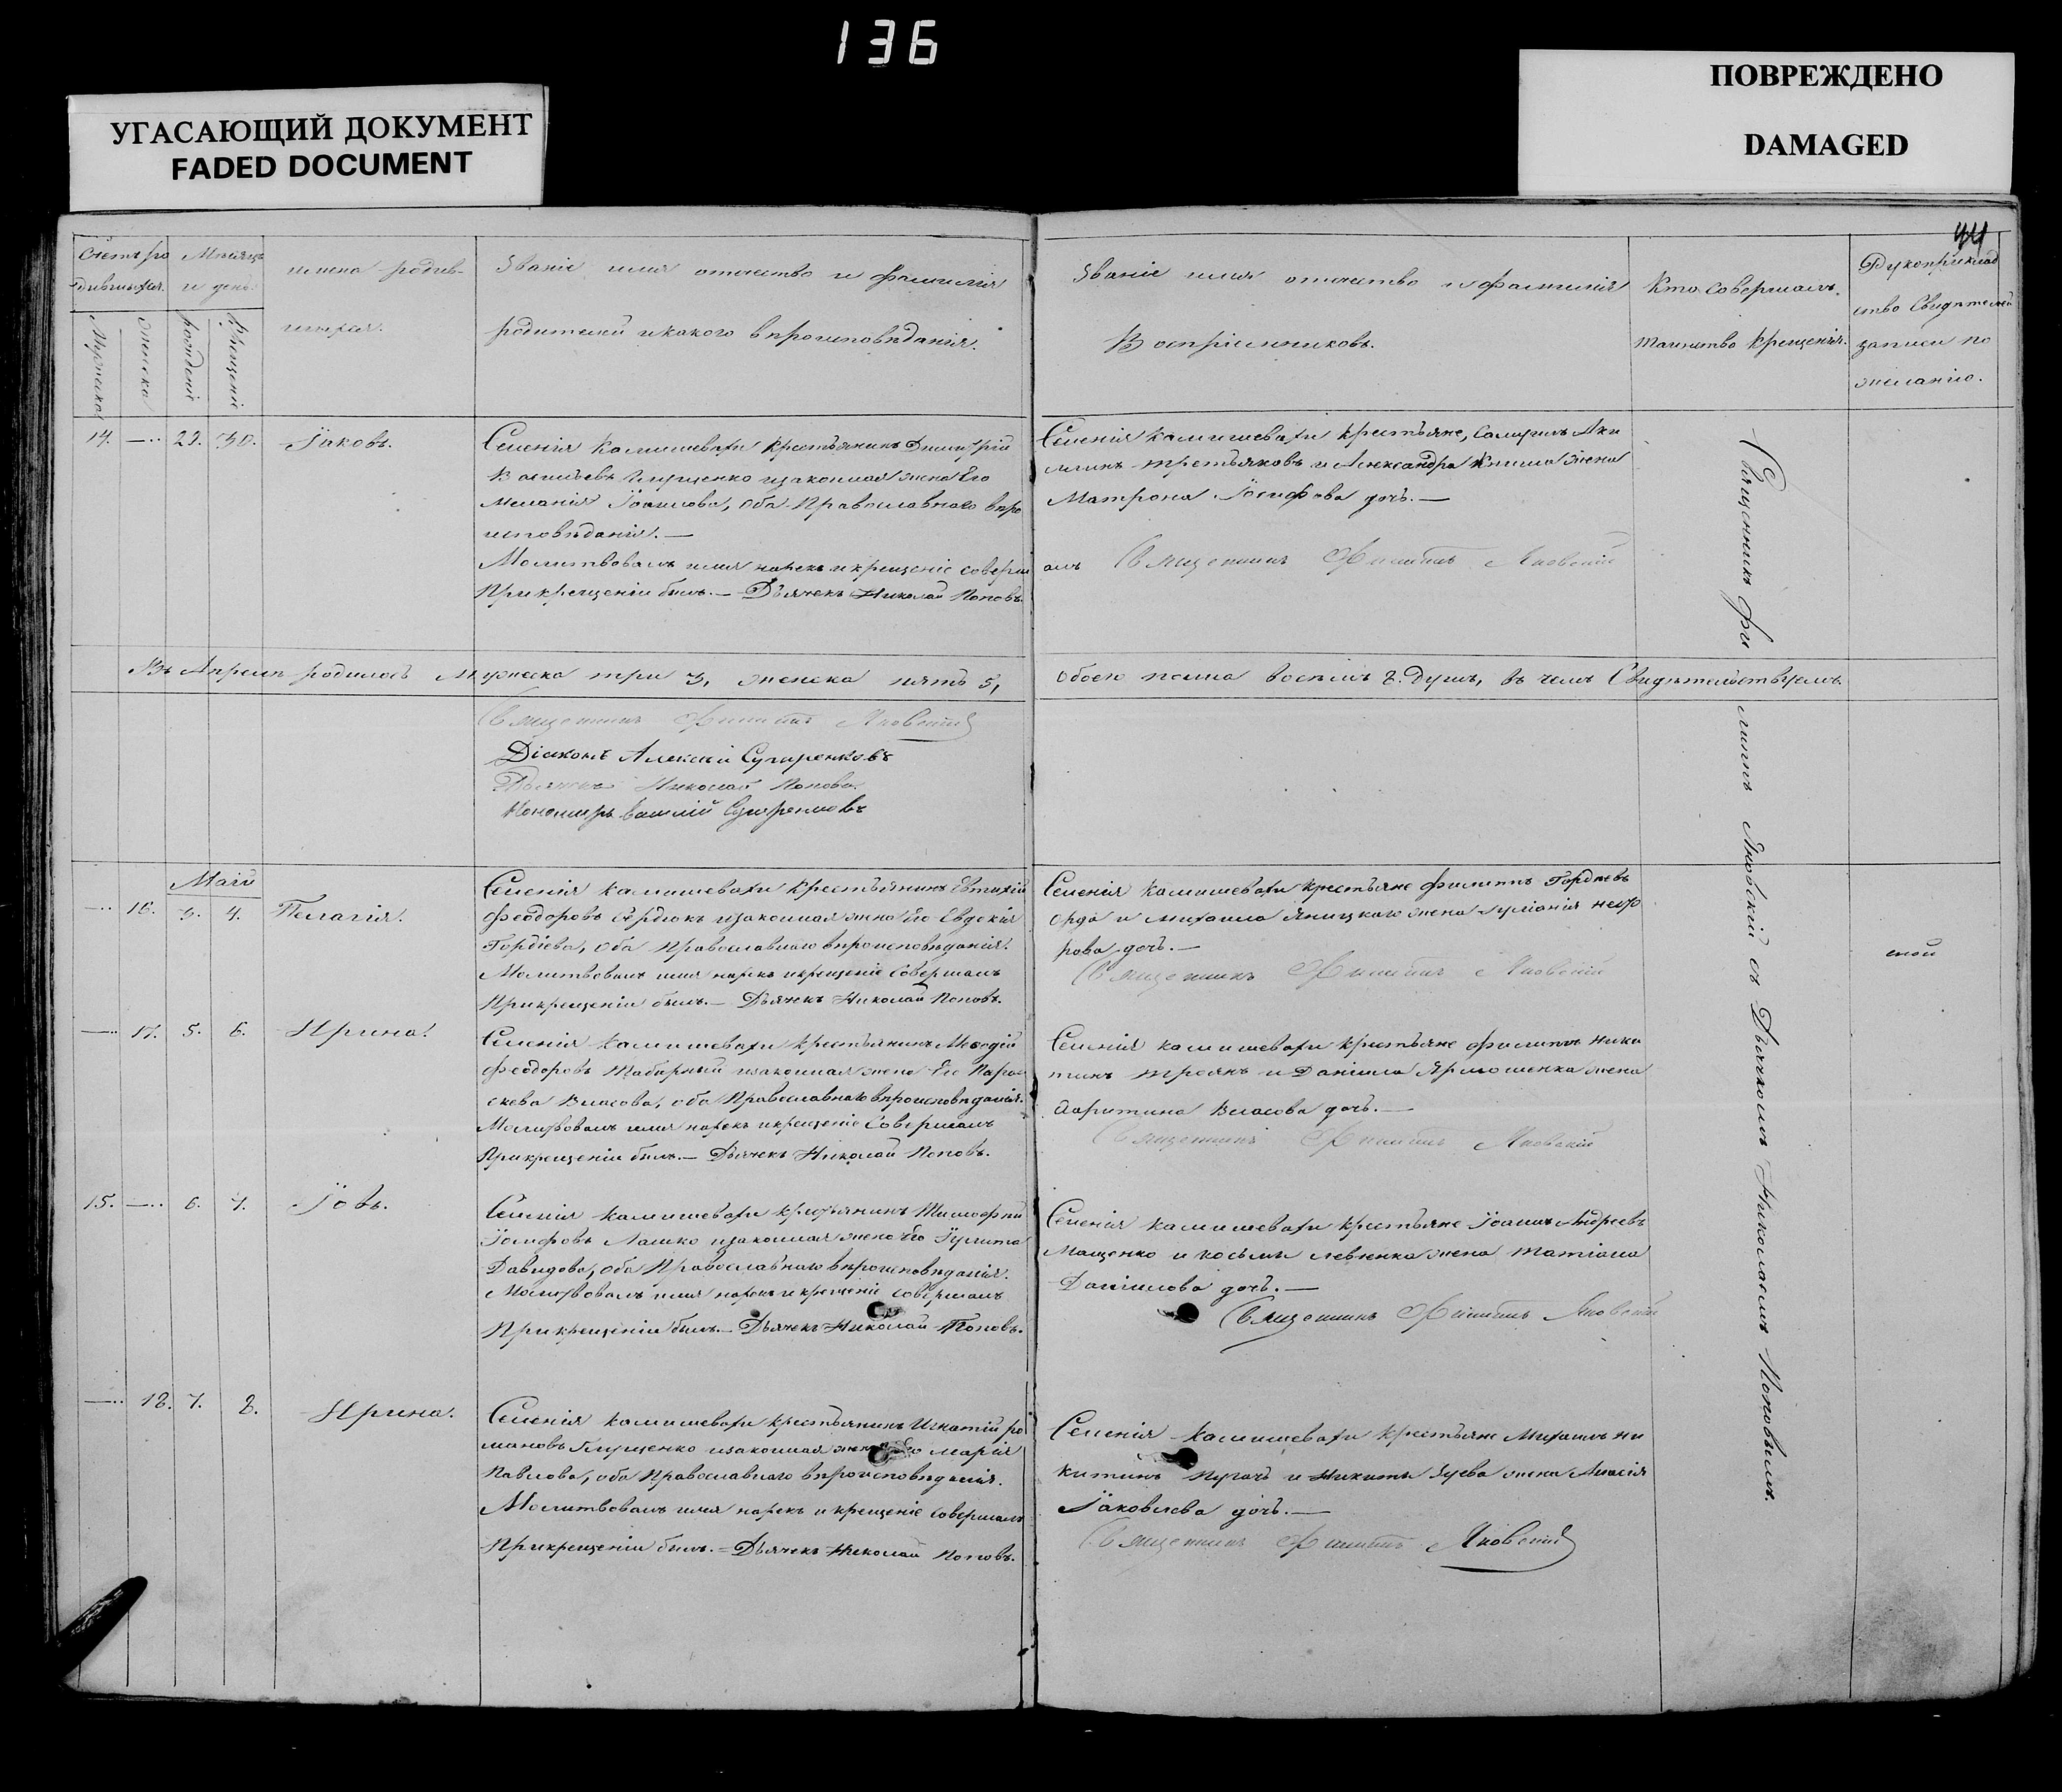 136
УГАСАЮЩИЙ ДОКУМЕНТ
FADED DOCUMENT
ПОВРЕЖДЕНО
DAMAGED
44
Счетъ ро
дившихся.
Мужеска
женска
Мѣсяцъ
и день
рожденія
Крещенія
имена родив-
шихся.
Званіе, имя отчество и фамилія
родителей и какого вѣроисповѣданія.
Званіе имя отчество и фамилія
Воспріемниковъ.
Кто совершалъ
таинство крещенія.
Рукоприклад
ство Свидѣтелей
записи по
желанію.
14. —.. 29. 30. Іаковъ.
Селенія Камышевахи крестьянинъ Димитрій
Васильевъ Глущенко и законная жена Его
Меланія Іоаннова, оба Православнаго вѣро
исповѣданія.—
Молитвовалъ имя нарекъ и крещеніе соверш
При крещеніи былъ.— Дьячекъ Николай Поповъ.
Селенія Камышевахи крестьяне, Самуилъ Аки
минъ Третьяковъ и Александра Книша жена
Матрона Іосифова дочь.—
алъ Священникъ Филиппъ Яновскій
Въ Апрелѣ родилось Мужеска три 3, женска пять 5,
обоего пола восемь 8. душъ, въ чемъ Свидѣтельствуемъ.
Священникъ Филиппъ Яновскій
Діаконъ Алексій
Дьячекъ Николай Поповъ.
Пономарь Василій
Маій
—.. 16. 3. 4. Пелагія.
Селенія Камышевахи крестьянинъ Евтихій
Феодоровъ Сердюкъ и законная жена Его Евдокія
Гордіева, оба Православнаго вѣроисповѣданія.
Молитвовалъ имя нарекъ и крещеніе Совершалъ
При крещеніи былъ.— Дьячекъ Николай Поповъ.
Селенія Камышевахи крестьяне Филиппъ Гордѣевъ
Орда и Михаила Яницкаго жена Іуліанія
рова дочь.—
Священникъ Филиппъ Яновскій
—.. 17. 5. 6. Ирина.
Селенія Камышевахи крестьянинъ Меѳодій
Феодоровъ Табирный и законная жена Его Парас
кева Власова, оба Православнаго вѣроисповѣданія.
Молитвовалъ имя нарекъ и крещеніе Совершалъ
При крещеніи былъ.— Дьячекъ Николай Поповъ.
Селенія Камышевахи крестьяне Филиппъ Ники
тинъ Троянъ и Даніила Ярмошенка жена
Власова дочь.—
Священникъ Филиппъ Яновскій
15. —.. 6. 7. Іовъ.
Селенія Камышевахи крестьянинъ Тимофѣй
Іосифовъ Лашко и законная жена Его Іулита
Давидова, оба Православнаго вѣроисповѣданія.
Молитвовалъ имя нарекъ и крещеніе совершалъ
При крещеніи былъ.— Дьячекъ Николай Поповъ.
Селенія Камышевахи крестьяне Іоаннъ Андреевъ
Мащенко и Косьмы Левченка жена Татіана
Даніилова дочь.—
Священникъ Филиппъ Яновскій
—.. 18. 7. 8. Ирина.
Селенія Камышевахи крестьянинъ Игнатій Ро
мановъ Глущенко и законная жена Его Марія
Павлова, оба Православнаго вѣроисповѣданія.
Молитвовалъ имя нарекъ и крещеніе совершалъ
При крещеніи былъ.— Дьячекъ Николай Поповъ.
Селенія Камышевахи крестьяне Михаилъ Ни
китинъ Пугачъ и Никиты Зуева жена
Іаковлева дочь.—
Священникъ Филиппъ Яновскій
Священникъ Филиппъ Яновскій съ Дьячкомъ Николаемъ Поповымъ.